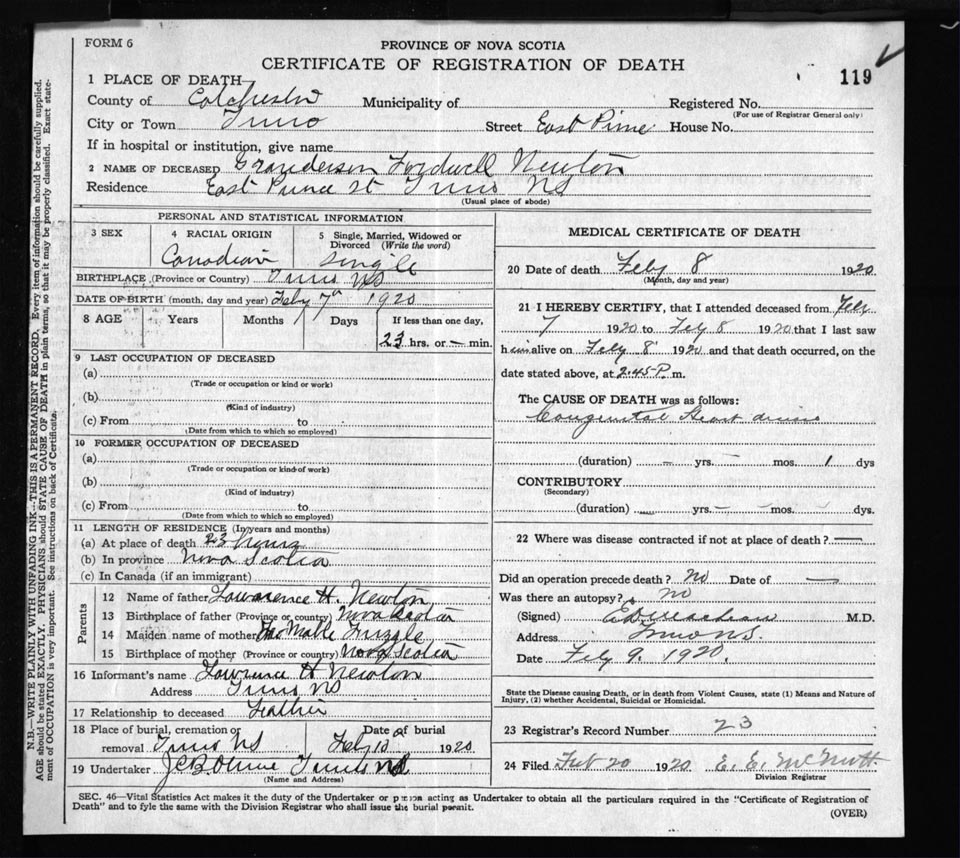 FORM 6
PROVINCE OF NOVA SCOTIA
CERTIFICATE OF REGISTRATION OF DEATH
119
1 PLACE OF DEATH
County of Colchester Municipality of Registered No.
(For use of Registrar General only)
City or Town Truro Street East Prince House No.
If in hospital or institution, give name
2 NAME OF DECEASED Newton
Residence East Prince St Truro NS
(Usual place of abode)
PERSONAL AND STATISTICAL INFORMATION
3 SEX 4 RACIAL ORIGIN 5 Single, Married, Widowed or Divorced (Write the word)
Canadian Single
BIRTHPLACE (Province or Country) Truro NS
DATE OF BIRTH (month, day and year) Feby 7th 1920
8 AGE Years Months Days If less than one day,
23 hrs. or — min.
9 LAST OCCUPATION OF DECEASED
(a)
(Trade or occupation or kind or work)
(b)
(Kind of industry)
(c) From to
(Date from which to which so employed)
10 FORMER OCCUPATION OF DECEASED
(a)
(Trade or occupation or kind of work)
(b)
(Kind of industry)
(c) From to
(Date from which to which so employed)
11 LENGTH OF RESIDENCE (In years and months)
(a) At place of death 23 hours
(b) In province Nova Scotia
(c) In Canada (if an immigrant)
Parents
12 Name of father Lawrence H. Newton
13 Birthplace of father (Province or country) Nova Scotia
14 Maiden name of mother Frizzle
15 Birthplace of mother (Province or country) Nova Scotia
16 Informant's name Lawrence H Newton
Address Truro NS
17 Relationship to deceased Father
18 Place of burial, cremation or removal Truro NS Date of burial Feby 10 1920
19 Undertaker Truro NS
(Name and Address)
MEDICAL CERTIFICATE OF DEATH
20 Date of death Feby 8 1920
(Month, day and year)
21 I HEREBY CERTIFY, that I attended deceased from Feby
7 1920 to Feby 8 1920 that I last saw
him alive on Feby 8 1920 and that death occurred, on the
date stated above, at 2.45 P. m.
The CAUSE OF DEATH was as follows:
Congenital Heart disease
(duration) — yrs. — mos. 1 dys
CONTRIBUTORY
(Secondary)
(duration) — yrs. — mos. — dys.
22 Where was disease contracted if not at place of death? —
Did an operation precede death? no Date of —
Was there an autopsy? no
(Signed) M.D.
Address Truro NS.
Date Feby 9. 1920.
State the Disease causing Death, or in death from Violent Causes, state (1) Means and Nature of
Injury, (2) whether Accidental, Suicidal or Homicidal.
23 Registrar's Record Number 23
24 Filed Feb 20 1920 E. E. McNutt
Division Registrar
SEC. 46—Vital Statistics Act makes it the duty of the Undertaker or person acting as Undertaker to obtain all the particulars required in the "Certificate of Registration of
Death" and to fyle the same with the Division Registrar who shall issue the burial permit.
(OVER)
N.B.—WRITE PLAINLY WITH UNFADING INK—THIS IS A PERMANENT RECORD. Every item of information should be carefully supplied.
AGE should be stated EXACTLY. PHYSICIANS should STATE CAUSE OF DEATH in plain terms, so that it may be properly classified. Exact state-
ment of OCCUPATION is very important. See instructions on back of Certificate.